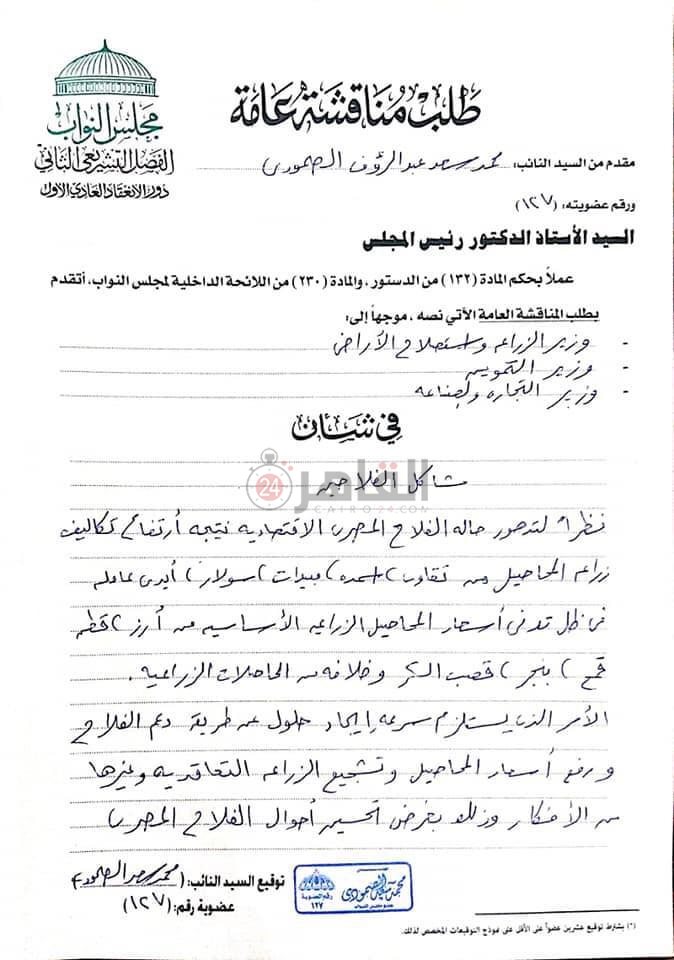 مجلس النواب
الفصل التشريعي الثاني
دور الانعقاد العادي الأول
طلب مناقشة عامة
مقدم من السيد النائب: محمد سعد عبد الرؤف الصمودى
ورقم عضويته: (١٢٧)
السيد الأستاذ الدكتور رئيس المجلس
عملاً بحكم المادة (١٣٢) من الدستور، والمادة (٢٣٠) من اللائحة الداخلية لمجلس النواب، أتقدم
بطلب المناقشة العامة الآتي نصه، موجهاً إلى:
- وزير الزراعه واستصلاح الأراض
- وزير التموين
- وزير التجاره والصناعه
في شأن
مشاكل الفلاحين
القاهرة 24
CAIRO24.COM
نظراً لتدهور حاله الفلاح المصرى الاقتصاديه نتيجه أرتفاع تكاليف
زراعه المحاصيل من تقاوى) اسمده) مبيدات) سولار) أيدى عامله
فى ظل تدنى أسعار المحاصيل الزراعيه الأساسيه من أرز) قطن
قمح) بنجر) قصب السكر وخلافه من الحاصلات الزراعيه .
الأمر الذى يستلزم سرعه إيجاد حلول عن طريق دعم الفلاح
ورفع أسعار المحاصيل وتشجيع الزراعه التعاقديه وغيرها
من الأفكار وذلك بغرض تحسين أحوال الفلاح المصرى
توقيع السيد النائب: (محمد سعد الصمودى)
عضوية رقم: (١٢٧)
محمد سعد الصمودى
عضو مجلس النواب
رقم العضوية
١٢٧
(*) يشترط توقيع عشرين عضواً على الأقل على نموذج التوقيعات المخصص لذلك.